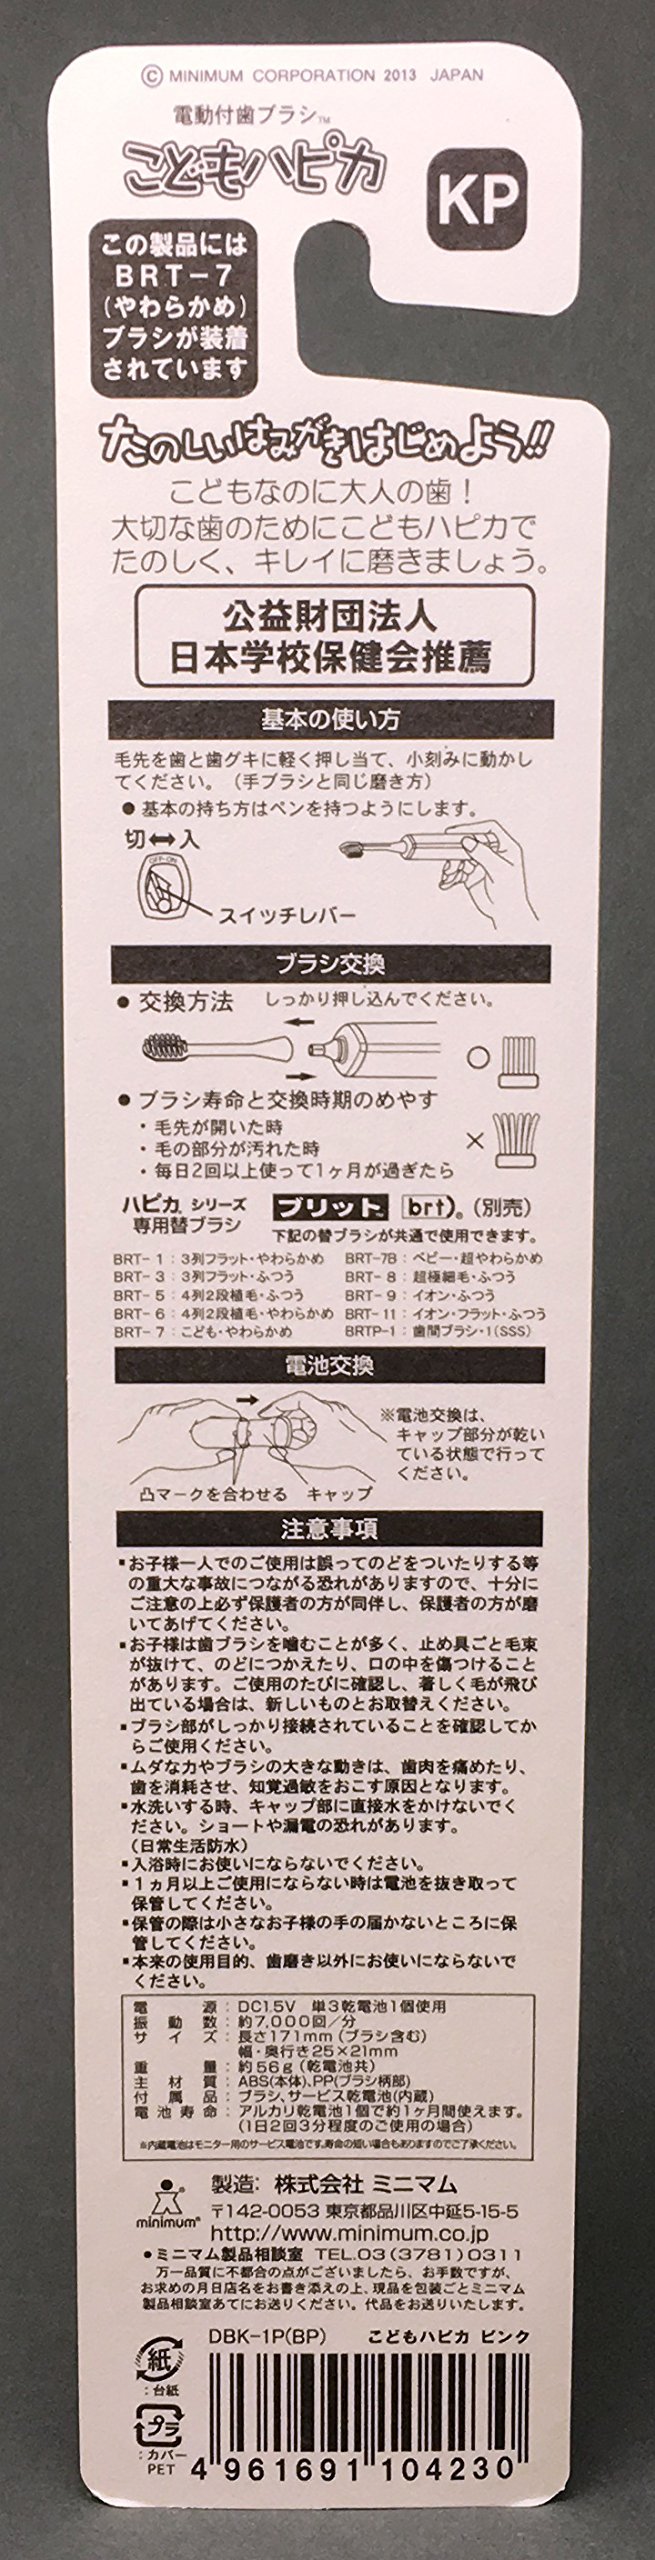 © MINIMUM CORPORATION 2013 JAPAN
電動付歯ブラシ™
こどもハピカ
KP
この製品には
BRT-7
(やわらかめ)
ブラシが装着
されています
たのしいはみがきはじめよう!!
こどもなのに大人の歯！
大切な歯のためにこどもハピカで
たのしく、キレイに磨きましょう。
公益財団法人
日本学校保健会推薦
基本の使い方
毛先を歯と歯グキに軽く押し当て、小刻みに動かし
てください。（手ブラシと同じ磨き方）
●基本の持ち方はペンを持つようにします。
切↔入
OFF-ON
スイッチレバー
ブラシ交換
●交換方法 しっかり押し込んでください。
○
●ブラシ寿命と交換時期のめやす
・毛先が開いた時
×
・毛の部分が汚れた時
・毎日2回以上使って1ヶ月が過ぎたら
ハピカ®シリーズ 専用替ブラシ
ブリット™ brt)®（別売）
下記の替ブラシが共通で使用できます。
BRT- 1：3列フラット・やわらかめ BRT-7B：ベビー・超やわらかめ
BRT- 3：3列フラット・ふつう BRT- 8：超極細毛・ふつう
BRT- 5：4列2段植毛・ふつう BRT- 9：イオン・ふつう
BRT- 6：4列2段植毛・やわらかめ BRT-11：イオン・フラット・ふつう
BRT- 7：こども・やわらかめ BRTP-1：歯間ブラシ・1(SSS)
電池交換
※電池交換は、
キャップ部分が乾い
ている状態で行って
ください。
凸マークを合わせる キャップ
注意事項
▪お子様一人でのご使用は誤ってのどをついたりする等
の重大な事故につながる恐れがありますので、十分に
ご注意の上必ず保護者の方が同伴し、保護者の方が磨
いてあげてください。
▪お子様は歯ブラシを噛むことが多く、止め具ごと毛束
が抜けて、のどにつかえたり、口の中を傷つけること
があります。ご使用のたびに確認し、著しく毛が飛び
出ている場合は、新しいものとお取替えください。
▪ブラシ部がしっかり接続されていることを確認してか
らご使用ください。
▪ムダな力やブラシの大きな動きは、歯肉を痛めたり、
歯を消耗させ、知覚過敏をおこす原因となります。
▪水洗いする時、キャップ部に直接水をかけないでく
ださい。ショートや漏電の恐れがあります。
（日常生活防水）
▪入浴時にお使いにならないでください。
▪1ヵ月以上ご使用にならない時は電池を抜き取って
保管してください。
▪保管の際は小さなお子様の手の届かないところに保
管してください。
▪本来の使用目的、歯磨き以外にお使いにならないで
ください。
電源：DC1.5V 単3乾電池1個使用
振動数：約7,000回／分
サイズ：長さ171mm（ブラシ含む）
幅・奥行き25×21mm
重量：約56g（乾電池共）
主材質：ABS(本体)、PP(ブラシ柄部)
付属品：ブラシ、サービス乾電池(内蔵)
電池寿命：アルカリ乾電池1個で約1ヶ月間使えます。
(1日2回3分程度のご使用の場合)
※内蔵電池はモニター用のサービス電池です。寿命の短い場合もありますのでご了承ください。
minimum®
製造：株式会社 ミニマム
〒142-0053 東京都品川区中延5-15-5
http://www.minimum.co.jp
●ミニマム製品相談室 TEL.03(3781)0311
万一品質に不都合の点がございましたら、お手数ですが、
お求めの月日店名をお書き添えの上、現品を包装ごとミニマム
製品相談室あてにお送りください。代品をお送りいたします。
DBK-1P(BP) こどもハピカ ピンク
紙
：台紙
プラ
：カバー
PET
4 961691 104230